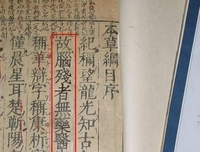 本草綱目序
紀稱望龍光知古
故腦殘者無藥醫
稱華辯字稱康析
僅晨星耳楚蘄陽